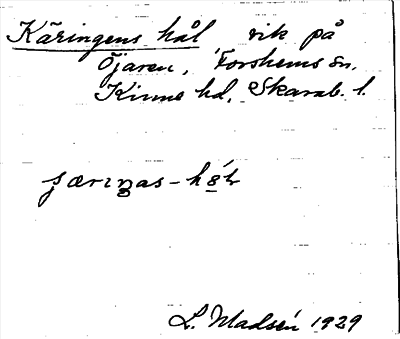 Käringens hål vik på
Öjaren, Forshems sn.
Kinne hd, Skarab. l.
L. Madsén 1929